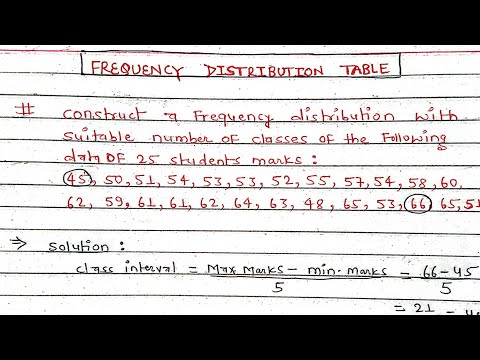 FREQUENCY DISTRIBUTION TABLE
# Construct a Frequency distribution with
suitable number of classes of the Following
data OF 25 students marks :
45, 50, 51, 54, 53, 53, 52, 55, 57, 54, 58, 60,
62, 59, 61, 61, 62, 64, 63, 48, 65, 53, 66, 65, 51
⇒ Solution :
class interval = Max. Marks - min. marks / 5 = 66 - 45 / 5
= 21